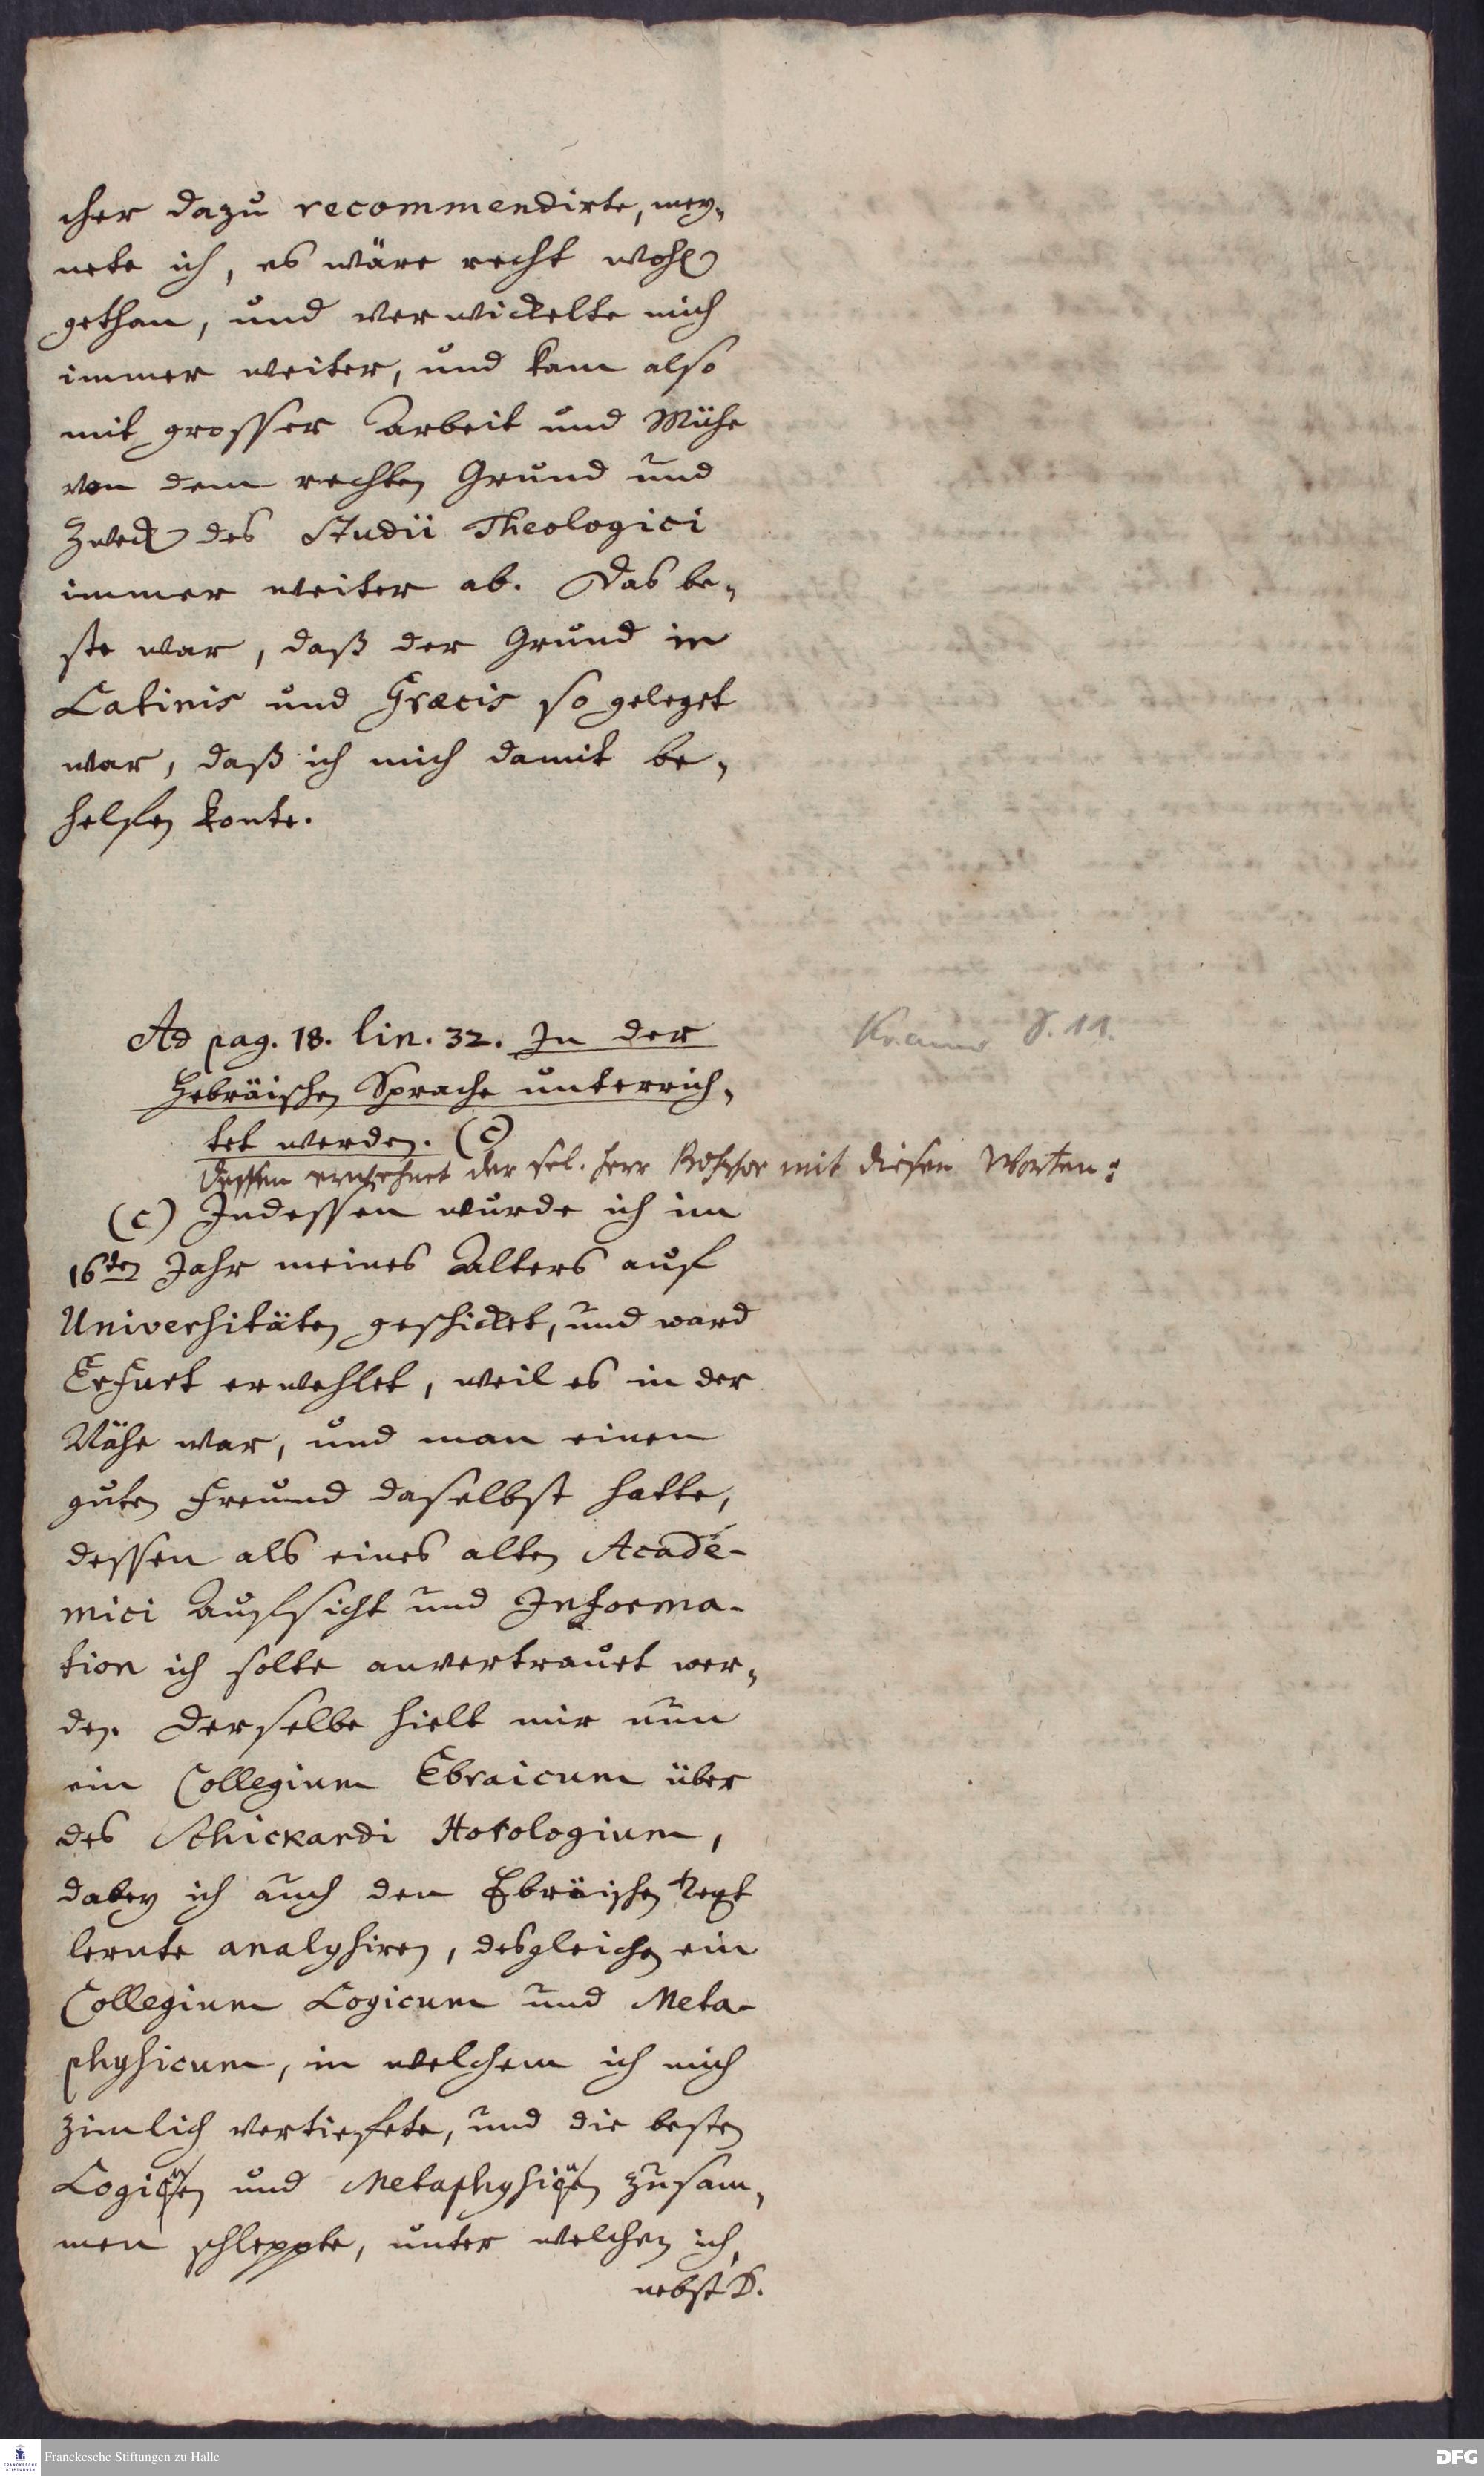 cher dazu recommendirte, mey¬
nete ich, es wäre recht wohl
gethan, und verwickelte mich
immer weiter, und kam also
mit grosser Arbeit und Mühe
von dem rechten Grund und
Zweck des Studii Theologici
immer weiter ab. Das be¬
ste war, daß der Grund in
Latinis und Græcis so geleget
war, daß ich mich damit be¬
helffen konte.
Ad pag. 18. lin. 32. In der
Hebräischen Sprache unterrich¬
tet werden. (c)
Kramer S. 11.
Dessen erwehnet der sel. Herr Professor mit diesen Worten:
(c) Indessen wurde ich im
16ten Jahr meines Alters auf
Universitäten geschicket, und ward
Erfurt erwehlet, weil es in der
Nähe war, und man einen
guten Freund daselbst hatte,
dessen als eines alten Acade-
mici Auffsicht und Informa-
tion ich solte anvertrauet wer¬
den. Derselbe hielt mir nun
ein Collegium Ebraicum über
des Schickardi Horologium,
dabey ich auch den Ebräischen Text
lernte analysiren, desgleichen ein
Collegium Logicum und Meta-
physicum, in welchem ich mich
zimlich vertieffete, und die besten
Logiquen und Metaphysiquen zusam¬
men schleppte, unter welchen ich,
nebst D.
Franckesche Stiftungen zu Halle
DFG